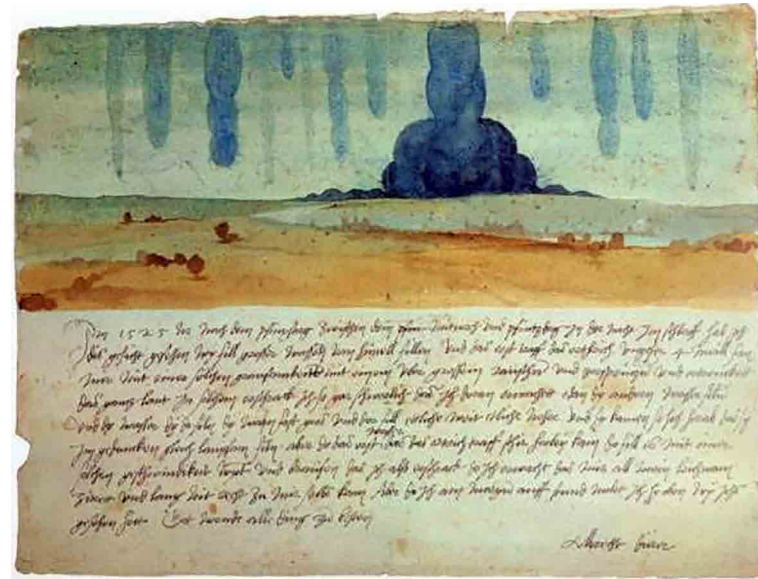 Im 1525 Jor nach dem pfinxtag zwischen dem mitwoch und pfintzdag in der nacht im schlaff hab ich
dis gesicht gesehen wy fill grosser wassern vom himell fillen Und das erst traff das erthrich ungefer 4 meill fan
mir mit einer solchen grausamkeitt mit einem uber grossem raüschn und zersprützn und ertrenckett
das gannz lant In solchem erschrack ich so gar schwerlich das ich doran erwachett edan dy andern wasser filn
Und dy wasser dy do filn dy warn fast gros und der fill ettliche weit etliche neher und sy kamen so hoch herab das sy
im gedancken gleich langsam filn. aber do das erst wasser das das ertrich traff schir herbey kam do fill es mit einer
solchen geschwindikeit wynt und braüsen das ich also erschrack do ich erwacht das mir all mein leichnam
zitrett und lang nit recht zu mir selbs kam Aber do ich am morgn auff stund molet ich hy oben wy ichs
gesehen hett. Got wende alle ding zu besten
Albrecht dürer